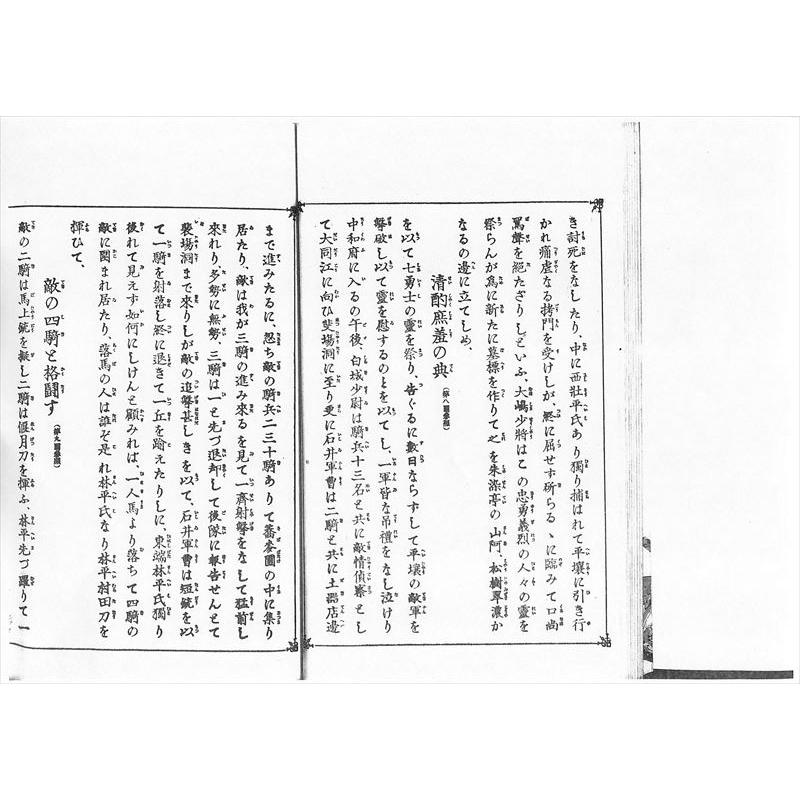 き討死をなしたり、中に西壯平氏あり獨り捕はれて平壤に引き行
かれ痛虐なる拷問を受けしが、終に屈せず斫らるゝに臨みて口尚
罵聲を絕たざりしといふ、大嶋少將はこの忠勇義烈の人々の靈を
祭らんが爲に新たに墓標を作りて之を朱染亭の山阿、松樹翠濃か
なるの邊に立てしめ、
清酌庶羞の典（第八圖參照）
を以て七勇士の靈を祭り、告ぐるに數日ならずして平壤の敵軍を
擊破し以て靈を慰するのとを以てし、一軍皆な吊禮をなし泣けり
中和府に入るの午後、白城少尉は騎兵十三名と共に敵情偵察とし
て大同江に向ひ斐場洞に至り更に石井軍曹は二騎と共に土器店邊
まで進みたるに、忽ち敵の騎兵二三十騎ありて蕎麥圃の中に集り
居たり、敵は我が三騎の進み來るを見て一齊射擊をなして猛前し
來れり、多勢に無勢、三騎は一と先づ退却して後隊に報告せんとて
裴場洞まで來りしが敵の追擊甚しきを以て、石井軍曹は短銃を以
て一騎を射落し終に退きて一丘を踰えたりしに、東端林平氏獨り
後れて見えず如何にしけんと顧みれば、一人馬より落ちて四騎の
敵に圍まれ居たり、落馬の人は誰ぞ是れ林平氏なり林平村田刀を
揮ひて、
敵の四騎と格鬪す（第九圖參照）
敵の二騎は馬上銃を擬し二騎は偃月刀を揮ふ、林平先づ躍りて一